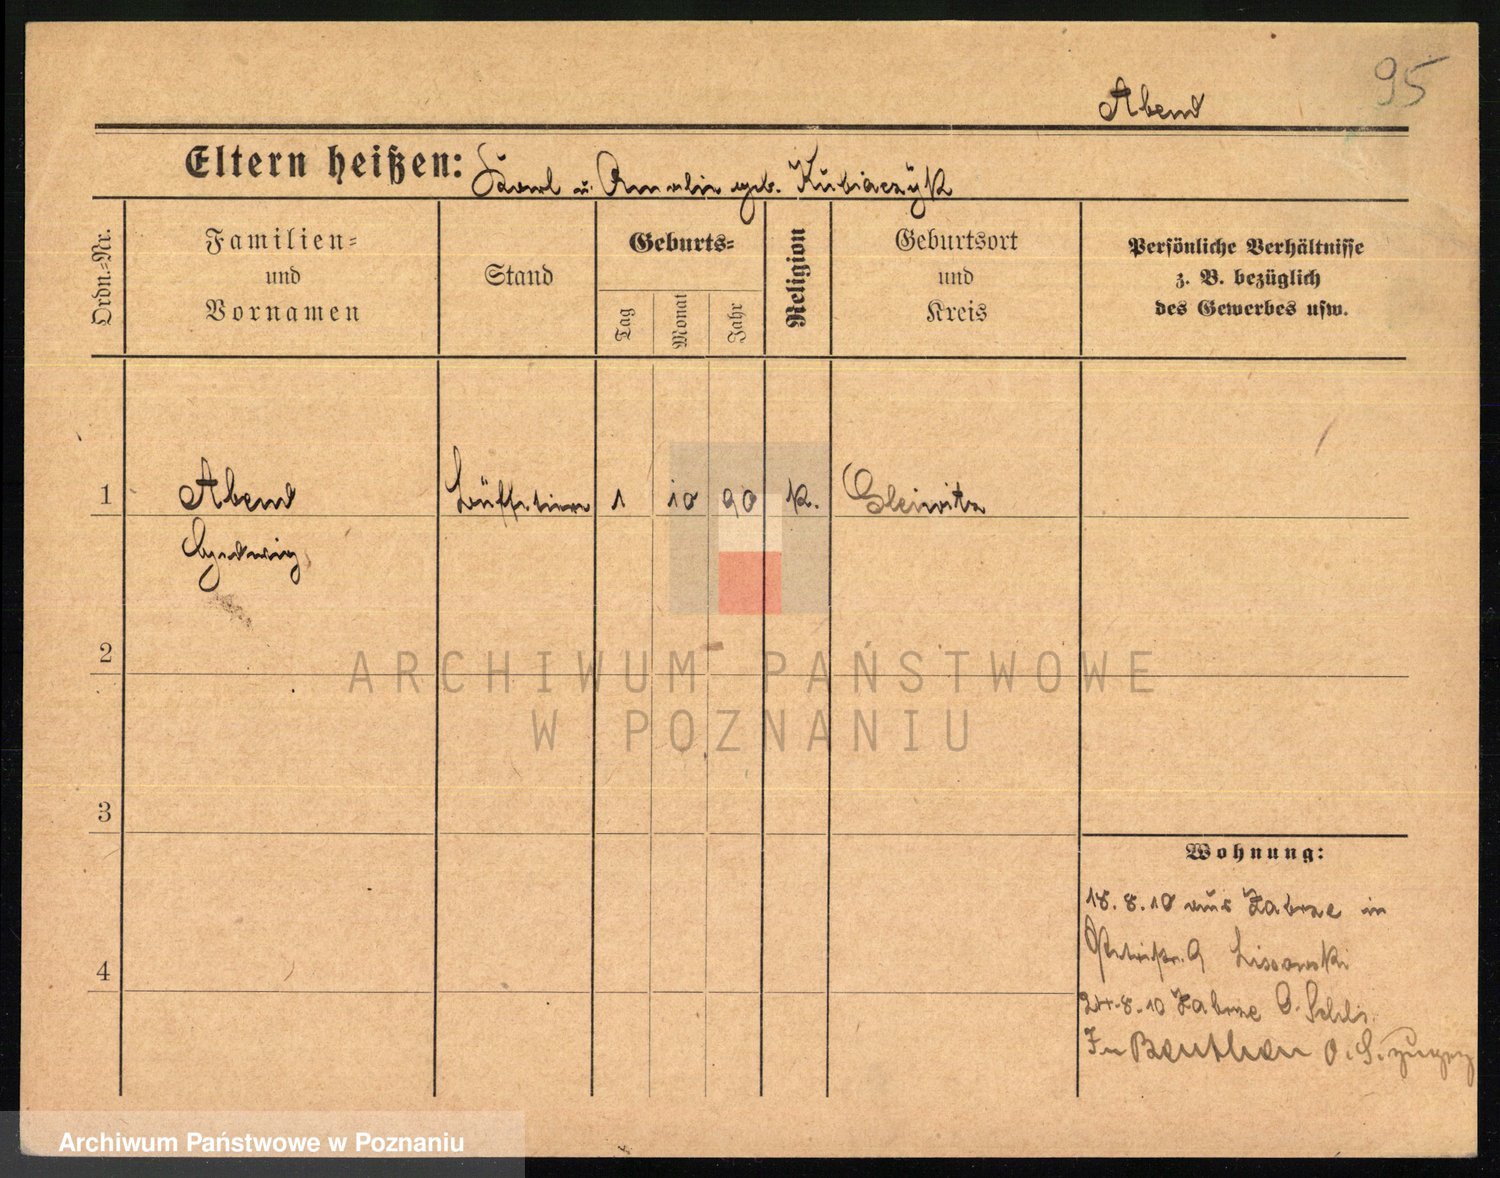 95
Abend
Eltern heißen: Karl u. Amalie geb. Kubiaczyk
Ordn.-Nr.
Familien-
und
Vornamen
Stand
Geburts-
Tag
Monat
Jahr
Religion
Geburtsort
und
Kreis
Persönliche Verhältnisse
z. B. bezüglich
des Gewerbes usw.
1 Abend Büffetiere 1 10 90 k. Gleiwitz
Hedwig
2
ARCHIWUM PAŃSTWOWE
W POZNANIU
3
Wohnung:
18.8.10 aus Zabrze in
9 Lissowski
4
24.8.10 Zabrze O. Schls.
In Beuthen O.S. zugez
Archiwum Państwowe w Poznaniu